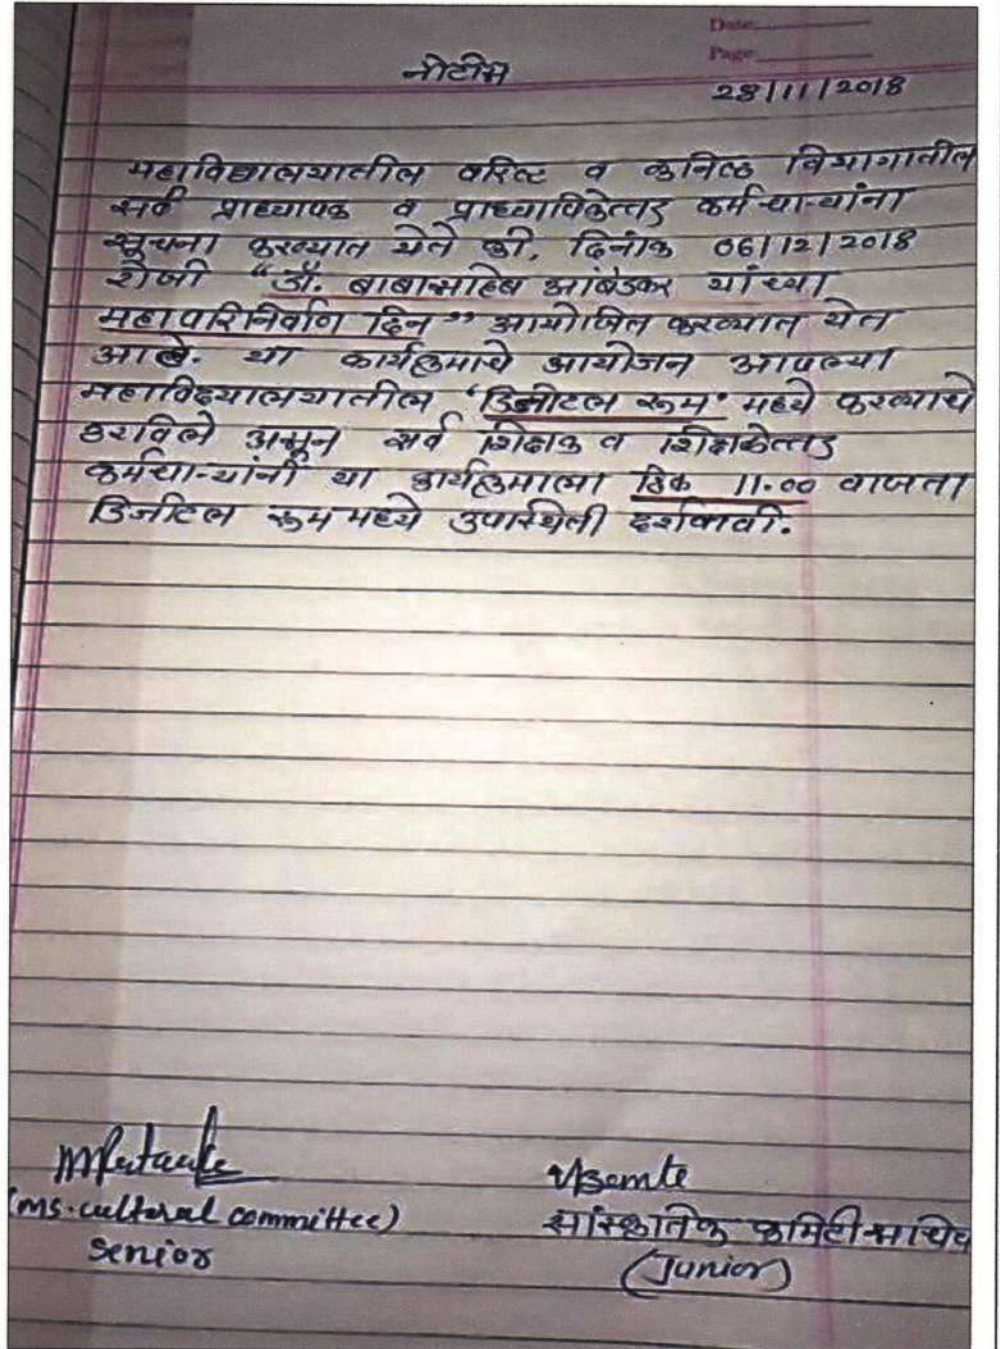 Date
Page
नोटीस
28/11/2018
महाविद्यालयातील वरिष्ट व कनिष्ठ विभागातील
सर्व प्राध्यापक व प्राध्यापिकेत्तर कर्मचाऱ्यांना
सूचना करण्यात येते की, दिनांक 06/12/2018
रोजी "डॉ. बाबासाहेब आंबेडकर यांच्या
महापरिनिर्वाण दिन" आयोजित करण्यात येत
आहे. या कार्यक्रमाचे आयोजन आपल्या
महाविद्यालयातील 'डिजीटल रूम' मध्ये करण्याचे
ठरविले असून सर्व शिक्षक व शिक्षकेत्तर
कर्मचाऱ्यांनी या कार्यक्रमाला ठिक 11.00 वाजता
डिजीटल रूम मध्ये उपस्थिती दर्शवावी.
(ms. cultural committee)
senior
सांस्कृतिक कमिटी सचिव
(Junior)